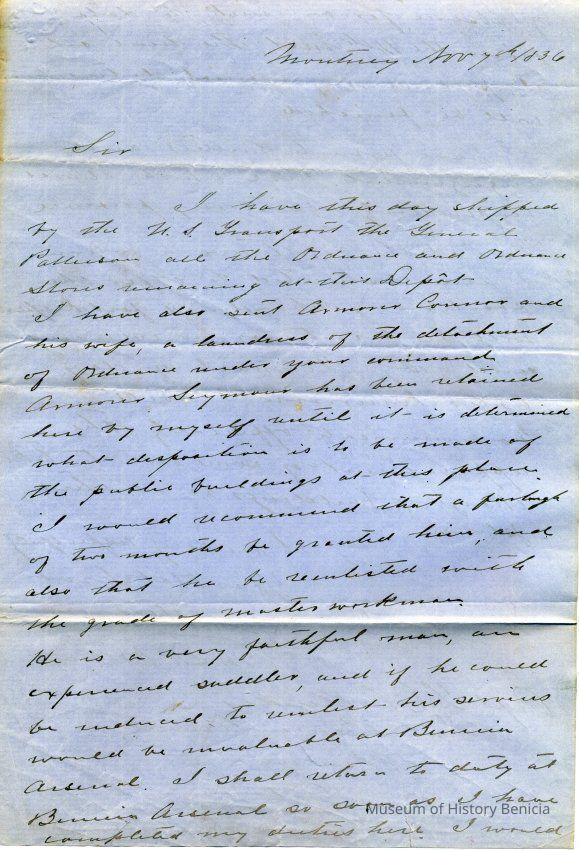 Monterey Nov 7th 1836
Sir
I have this day shipped
by the U. S. Transport the General
Patterson all the Ordnance and Ordnance
Stores remaining at this Depôt
I have also sent Armorer Connor and
his wife, a laundress of the detachment
of Ordnance under your command
Armorer Seymour has been retained
here by myself until it is determined
what disposition is to be made of
the public buildings at this place.
I would recommend that a furlough
of two months be granted him, and
also that he be reenlisted with
the grade of master workman.
He is a very faithful man, an
experienced saddler, and if he could
be induced to reenlist his services
would be invaluable at Benicia
Arsenal. I shall return to duty at
Benicia Arsenal so soon as I have
completed my duties here I would
Museum of History Benicia